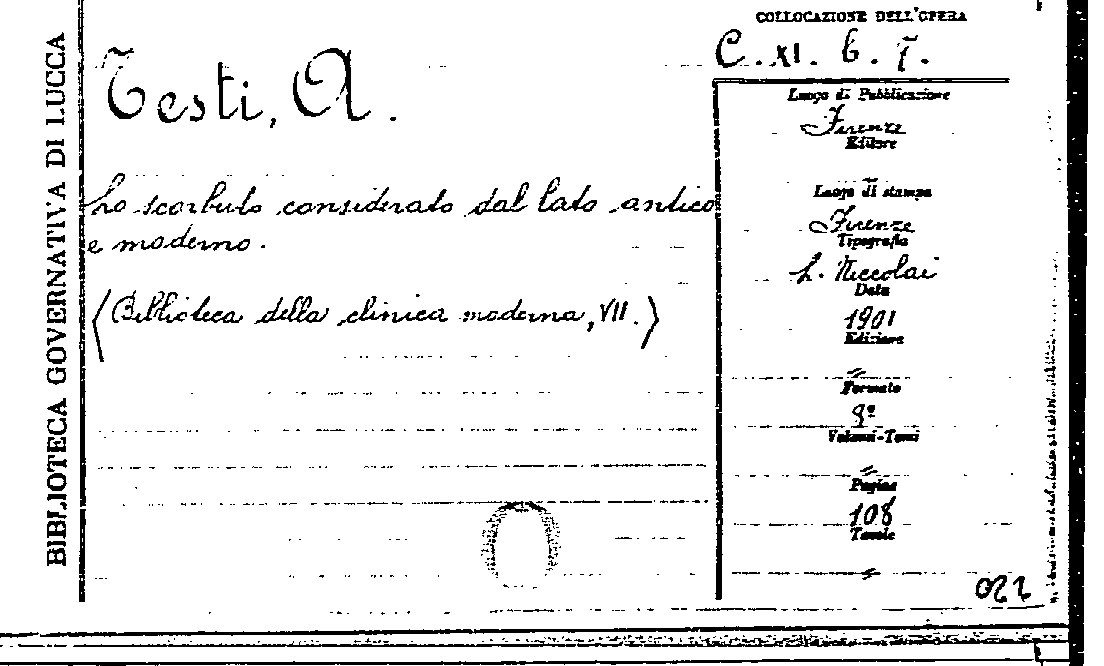 BIBLIOTECA GOVERNATIVA DI LUCCA
COLLOCAZIONE DELL'OPERA
C. XI. 6. 7.
Testi, A.
Lo scorbuto considerato dal lato antico
e moderno.
(Biblioteca della clinica moderna, VII.)
Luogo di Pubblicazione
Firenze
Editore
Luogo di stampa
Firenze
Tipografia
L. Niccolai
Data
1901
Edizione
"
Formato
8º
Volumi-Tomi
"
Pagine
108
Tavole
"